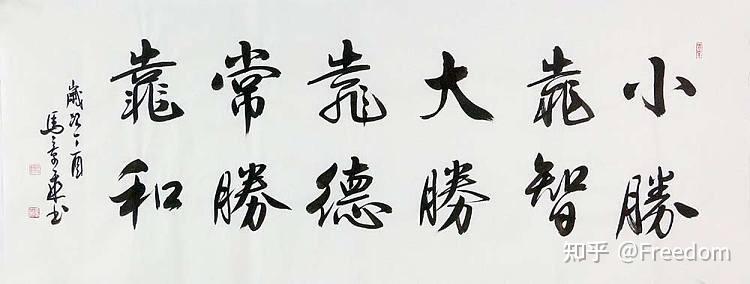 小勝
靠智
大勝
靠德
常勝
靠和
歲次丁酉
馬書
知乎 @Freedom